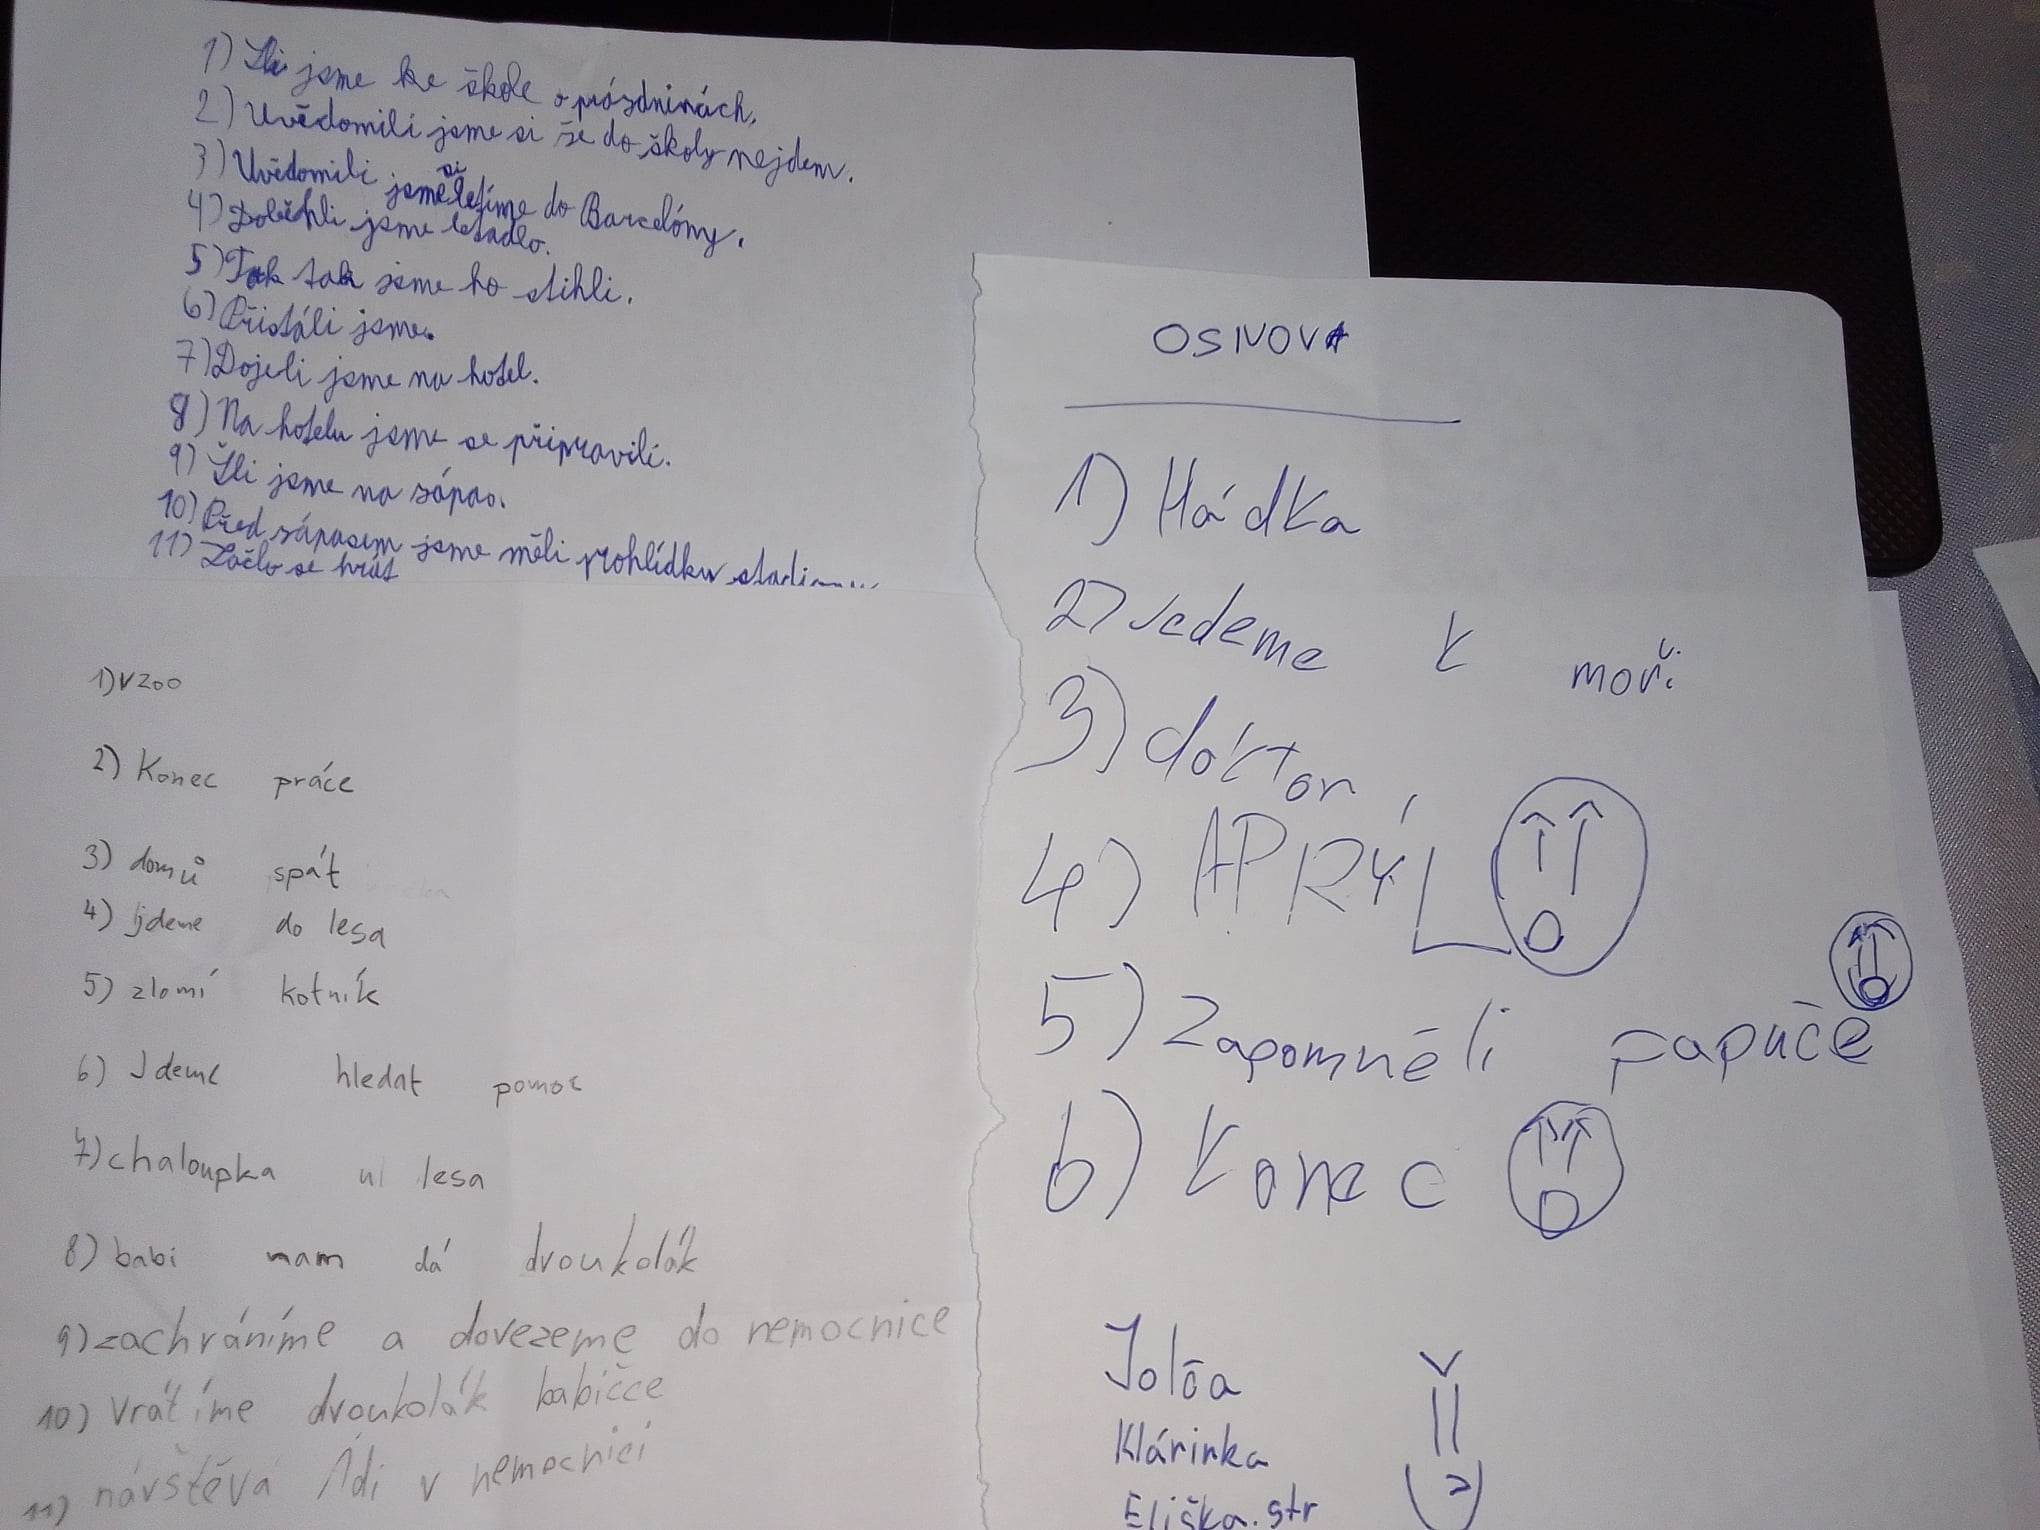 1) Šli jsme ke škole o prázdninách.
2) Uvědomili jsme si že do školy nejdem.
3) Uvědomili jsme si letíme do Barcelóny.
4) Doběhli jsme letadlo.
5) Tak tak jsme ho stihli.
6) Přistáli jsme.
7) Dojeli jsme na hotel.
8) Na hotelu jsme se připravili.
9) Šli jsme na zápas.
10) Před zápasem jsme měli prohlídku
11) Začlo se hrát
1) V ZOO
2) Konec práce
3) domů spát
4) jdeme do lesa
5) zlomí kotník
6) Jdeme hledat pomoc
7) chaloupka u lesa
8) babi nam dá dvoukolák
9) zachráníme a dovezeme do nemocnice
10) Vrátíme dvoukolák babičce
11) návštěva Ádi v nemocnici
OSNOVA
1) Hádka
2) Jedeme k moři
3) doktor
4) APRÝL
5) Zapomněli papuče
6) Konec
Klárinka
Eliška.str